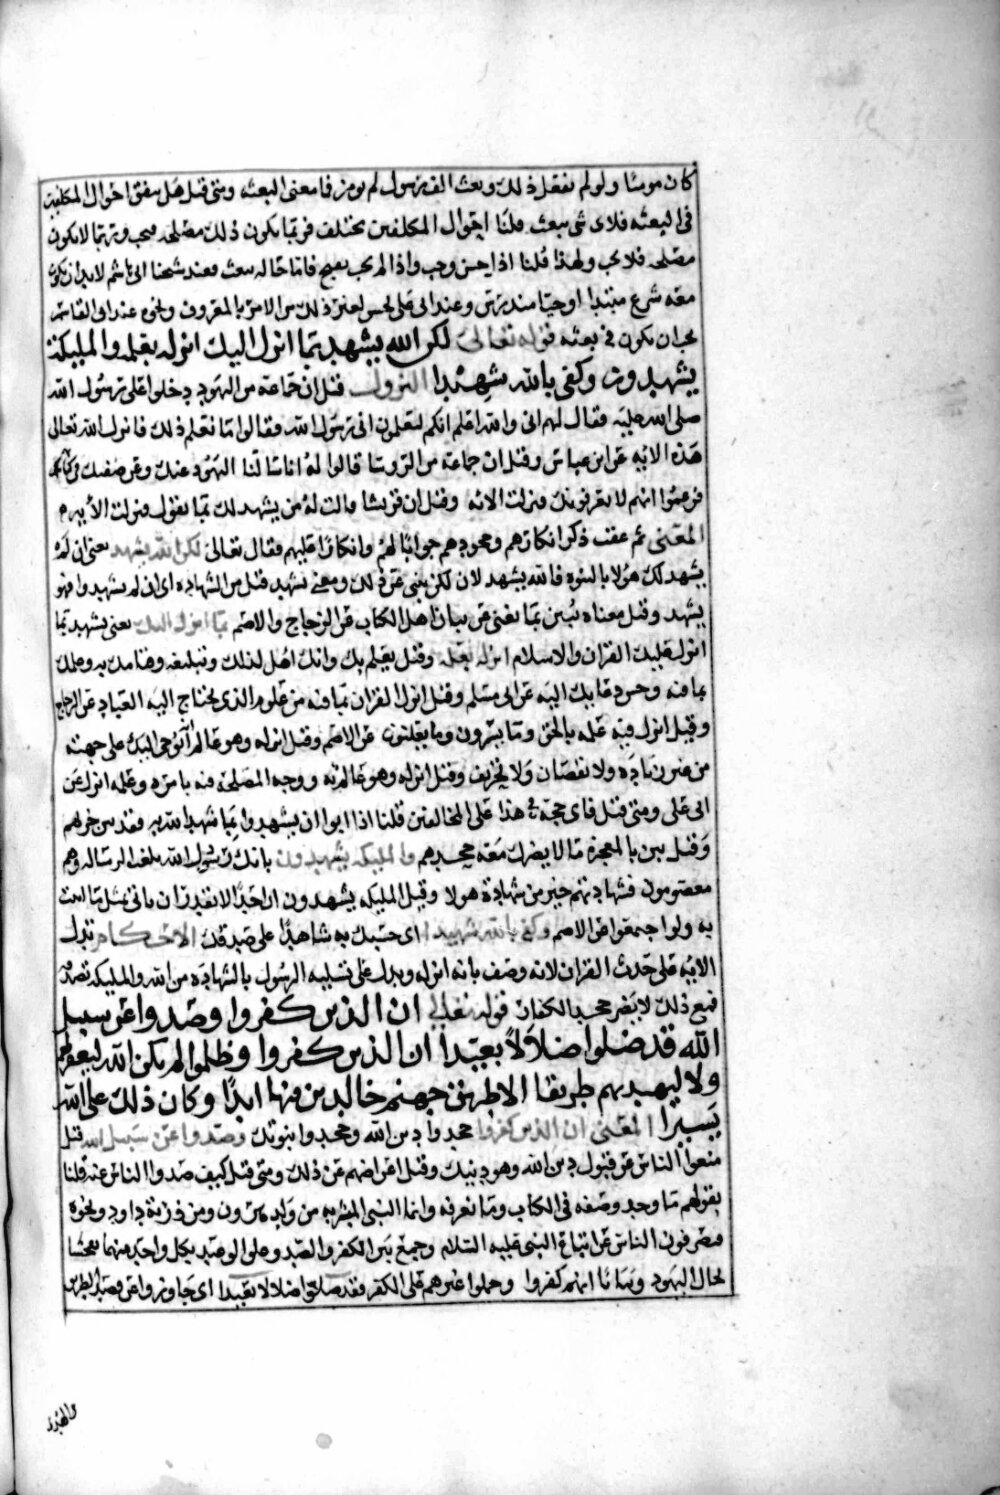 كان مومنا ولو لم يفعل ذلك وبعث الف رسول لم يومن فما معنى البعثه ومتى قيل هل يتفق احوال المكلفين
في البعثه فلاى شى يبعث قلنا احوال المكلفين تختلف فربما يكون ذلك مصلحه فيجب وربما لا يكون
مصلحه فلا يجب ولهذا قلنا اذا حسن وجب واذا لم يجب يقبح فاما حاله يبعث فعند شيخنا ابى هاشم لا بد ان يكون
معه شرع مبتدا او احيا مندرس وعند ابى على يحسن لغير ذلك من الامر بالمعروف ونحوه عند ابى القاسم
يجب ان يكون في بعثه قوله تعالى لكن الله يشهد بما انزل اليك انزله بعلمه والمليكة
يشهدون وكفى بالله شهيدا النزول قيل ان جماعة من اليهود دخلوا على رسول الله
صلى الله عليه فقال لهم انى والله اعلم انكم لتعلمون انى رسول الله فقالوا ما نعلم ذلك فانزل الله تعالى
هذه الايه عن ابن عباس وقيل ان جماعة من الروسا قالوا له انا سالنا اليهود عنك وعن صفتك في كتابهم
فزعموا انهم لا يعرفونك فنزلت الايه وقيل ان قريشا قالت له من يشهد لك بما تقول فنزلت الايه
المعنى ثم عقب ذكر انكارهم وجحودهم جوابا لهم وانكارا عليهم فقال تعالى لكن الله يشهد يعنى ان لم
يشهد لك هولا بالنبوه فالله يشهد لان لكن ينبى عن ذلك ومعنى يشهد قيل من الشهاده اى ان لم يشهدوا فهو
يشهد وقيل معناه يبين بما يغنى عن بيان اهل الكتاب عن الزجاج والاصم بما انزل اليك يعنى يشهد بما
انزل عليك القران والاسلام انزله بعلمه وقيل بعلم بك وانك اهل لذلك وتبليغه وقيامك به وعلمك
بما فيه وحسن دعايك اليه عن ابى مسلم وقيل انزل القران بما فيه من علوم الذى يحتاج اليه العباد عن الزجاج
وقيل انزل فيه علمه بالحق وما يسرون وما يعلنون عن الاصم وقيل انزله وهو عالم انزله اليك على جهته
من غير زياده ولا نقصان ولا تحريف وقيل انزله وهو عالم به ووجه المصلحة فيه بامره وعلمه انزل عن
ابى على ومتى قيل فاى حجة في هذا على المخالفين قلنا اذا ابوا ان يشهدوا بما شهد الله به فقد بين خزيهم
وقيل بين بالمعجزة ما لا يضرك معه جحدهم والمليكه يشهدون بانك رسول الله بلغت الرساله وهم
معصومون فشهادتهم خير من شهادة هولا وقيل المليكه يشهدون ان احدا لا يقدر ان ياتى بمثل ما اتيت
به ولو اجتمعوا عن الاصم وكفى بالله شهيدا اى حسبك به شاهدا على صدقك الاحكام تدل
الايه على حدث القران لانه وصف بانه انزله ويدل على تسليه الرسول بالشهاده من الله والمليكه تصدقه
فمع ذلك لا يضر جحد الكفار قوله تعالى ان الذين كفروا وصدوا عن سبيل
الله قد ضلوا ضلالاً بعيدا ان الذين كفروا وظلموا لم يكن الله ليغفر لهم
ولا ليهديهم طريقا الا طريق جهنم خالدين فيها ابدا وكان ذلك على الله
يسيرا المعنى ان الذين كفروا جحدوا دين الله وجحدوا نبوتك وصدوا عن سبيل الله قيل
منعوا الناس عن قبول دين الله وهو دينك وقيل اعراضهم عن ذلك ومتى قيل كيف صدوا الناس عنه قلنا
بقولهم ما وجد وصفه في الكتاب وما نعرفه وانما النبى المبشر به من ولد هرون ومن ذرية داود ونحوه
فيصرفون الناس عن اتباع النبى عليه السلام وجمع بين الكفر والصد وعلق الوعيد بكل واحد منهما
لحال اليهود وبيانا انهم كفروا وحملوا غيرهم على الكفر فقد ضلوا ضلالا بعيدا اى جاوزوا عن قصد الطريق